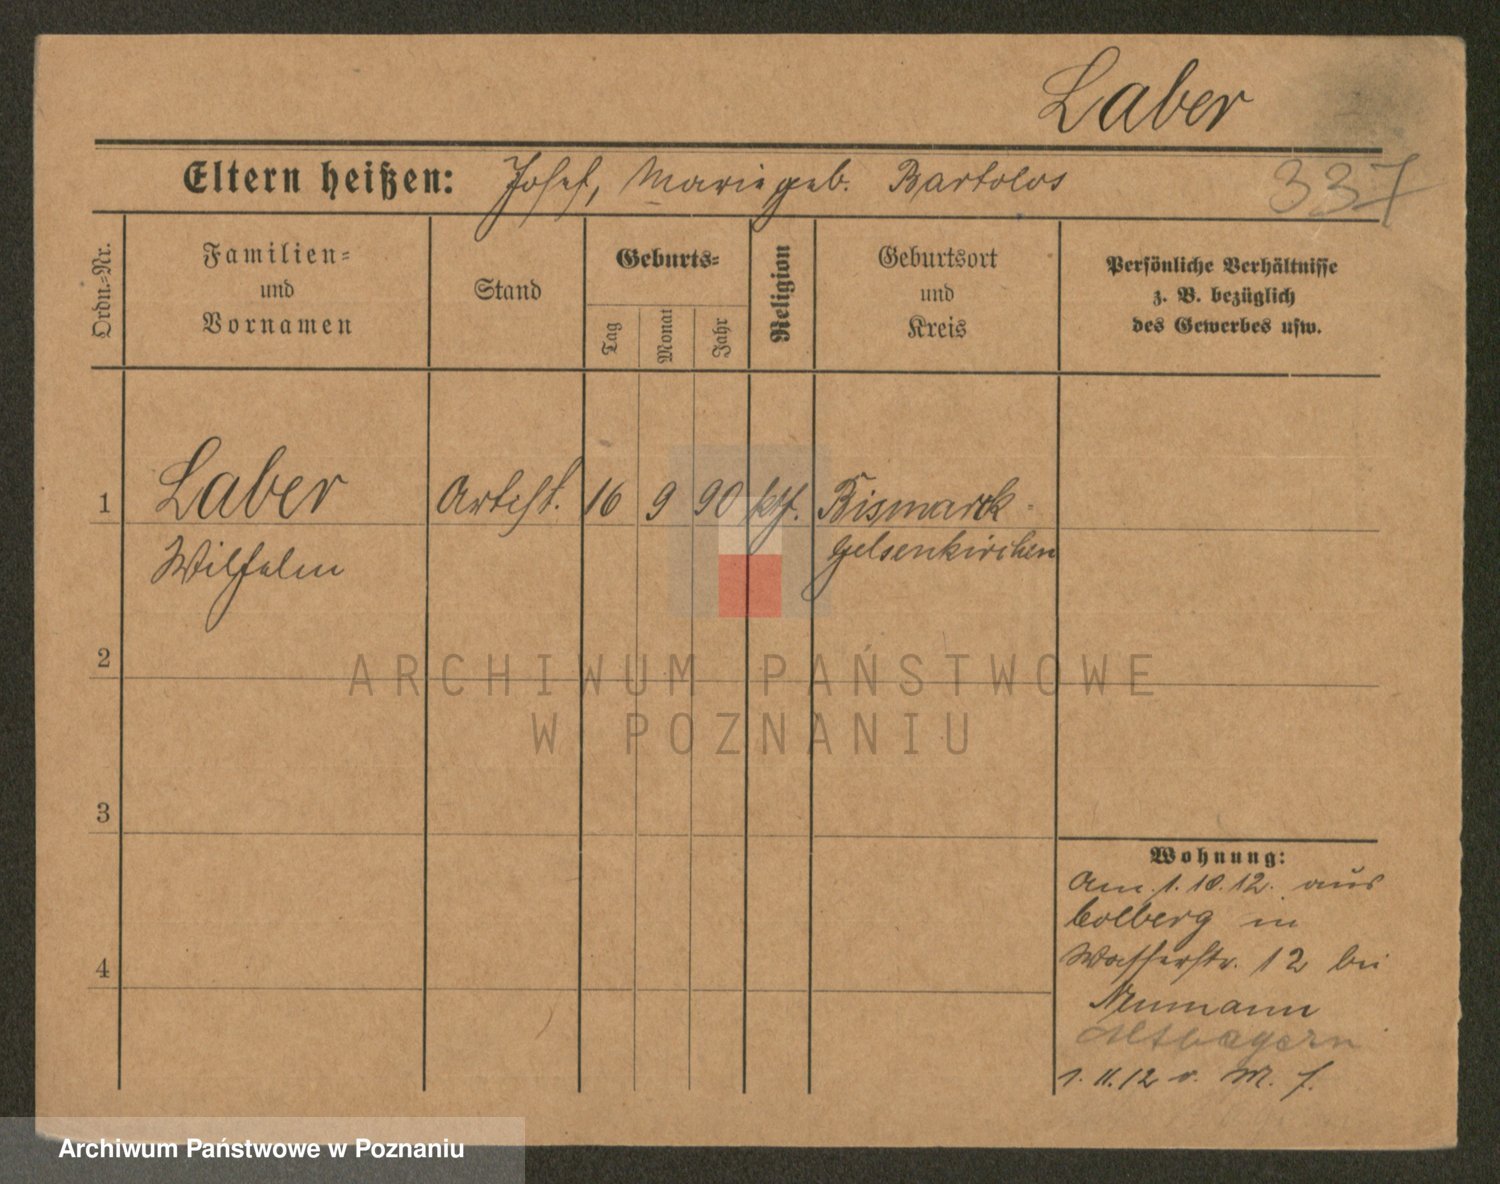 Laber
Eltern heißen: Josef, Marie geb. Bartolos
337
Ordn.=Nr.
Familien=
und
Vornamen
Stand
Geburts=
Tag
Monat
Jahr
Religion
Geburtsort
und
Kreis
Persönliche Verhältnisse
z. B. bezüglich
des Gewerbes usw.
1 Laber Artist. 16 9 90 kth. Bismarck
Wilhelm Gelsenkirchen
2
3
4
Wohnung:
Am 1. 10. 12. aus
Colberg in
Wasserstr. 12 bei
Neumann
Altbayern
1. 11. 12 v. M. f.
ARCHIWUM PAŃSTWOWE
W POZNANIU
Archiwum Państwowe w Poznaniu